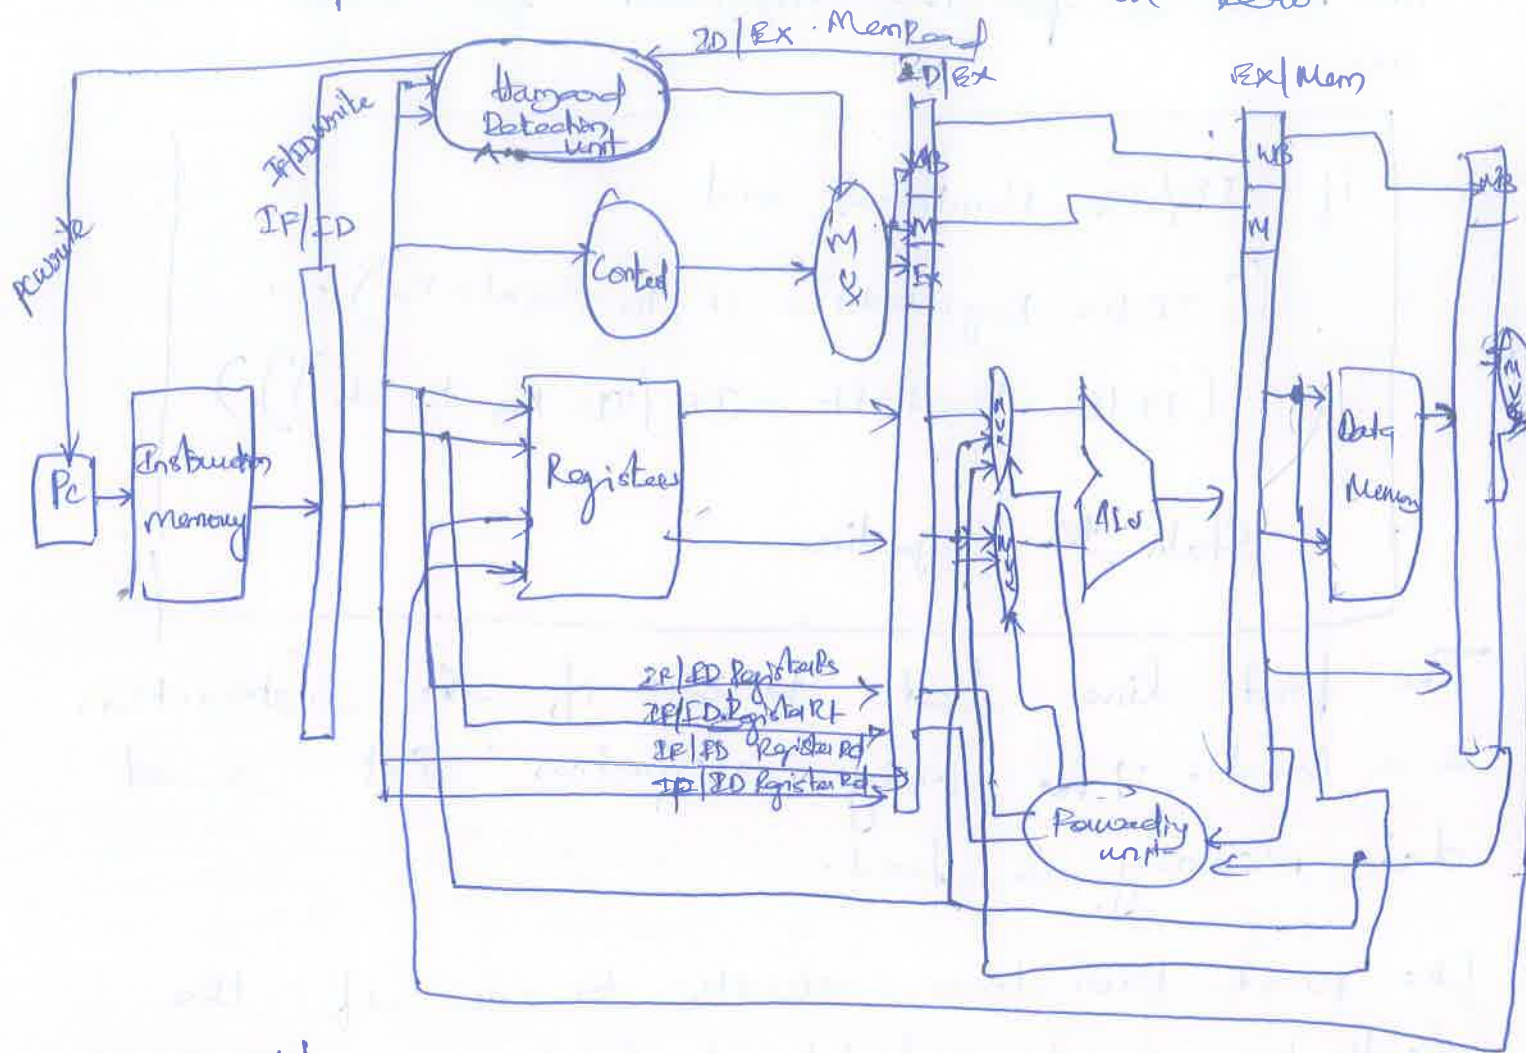 ID/EX . MemRead
ID/EX
EX/Mem
Hazard
Detection
unit
IF/IDWrite
IF/ID
PCWrite
Control
M
U
X
WB
M
EX
WB
M
WB
PC
Instruction
Memory
Registers
M
U
X
M
U
X
ALU
Data
Memory
M
U
X
IF/ID RegisterRs
IF/ID.RegisterRt
IF/ID RegisterRd
IF/ID RegisterRd
Forwarding
unit